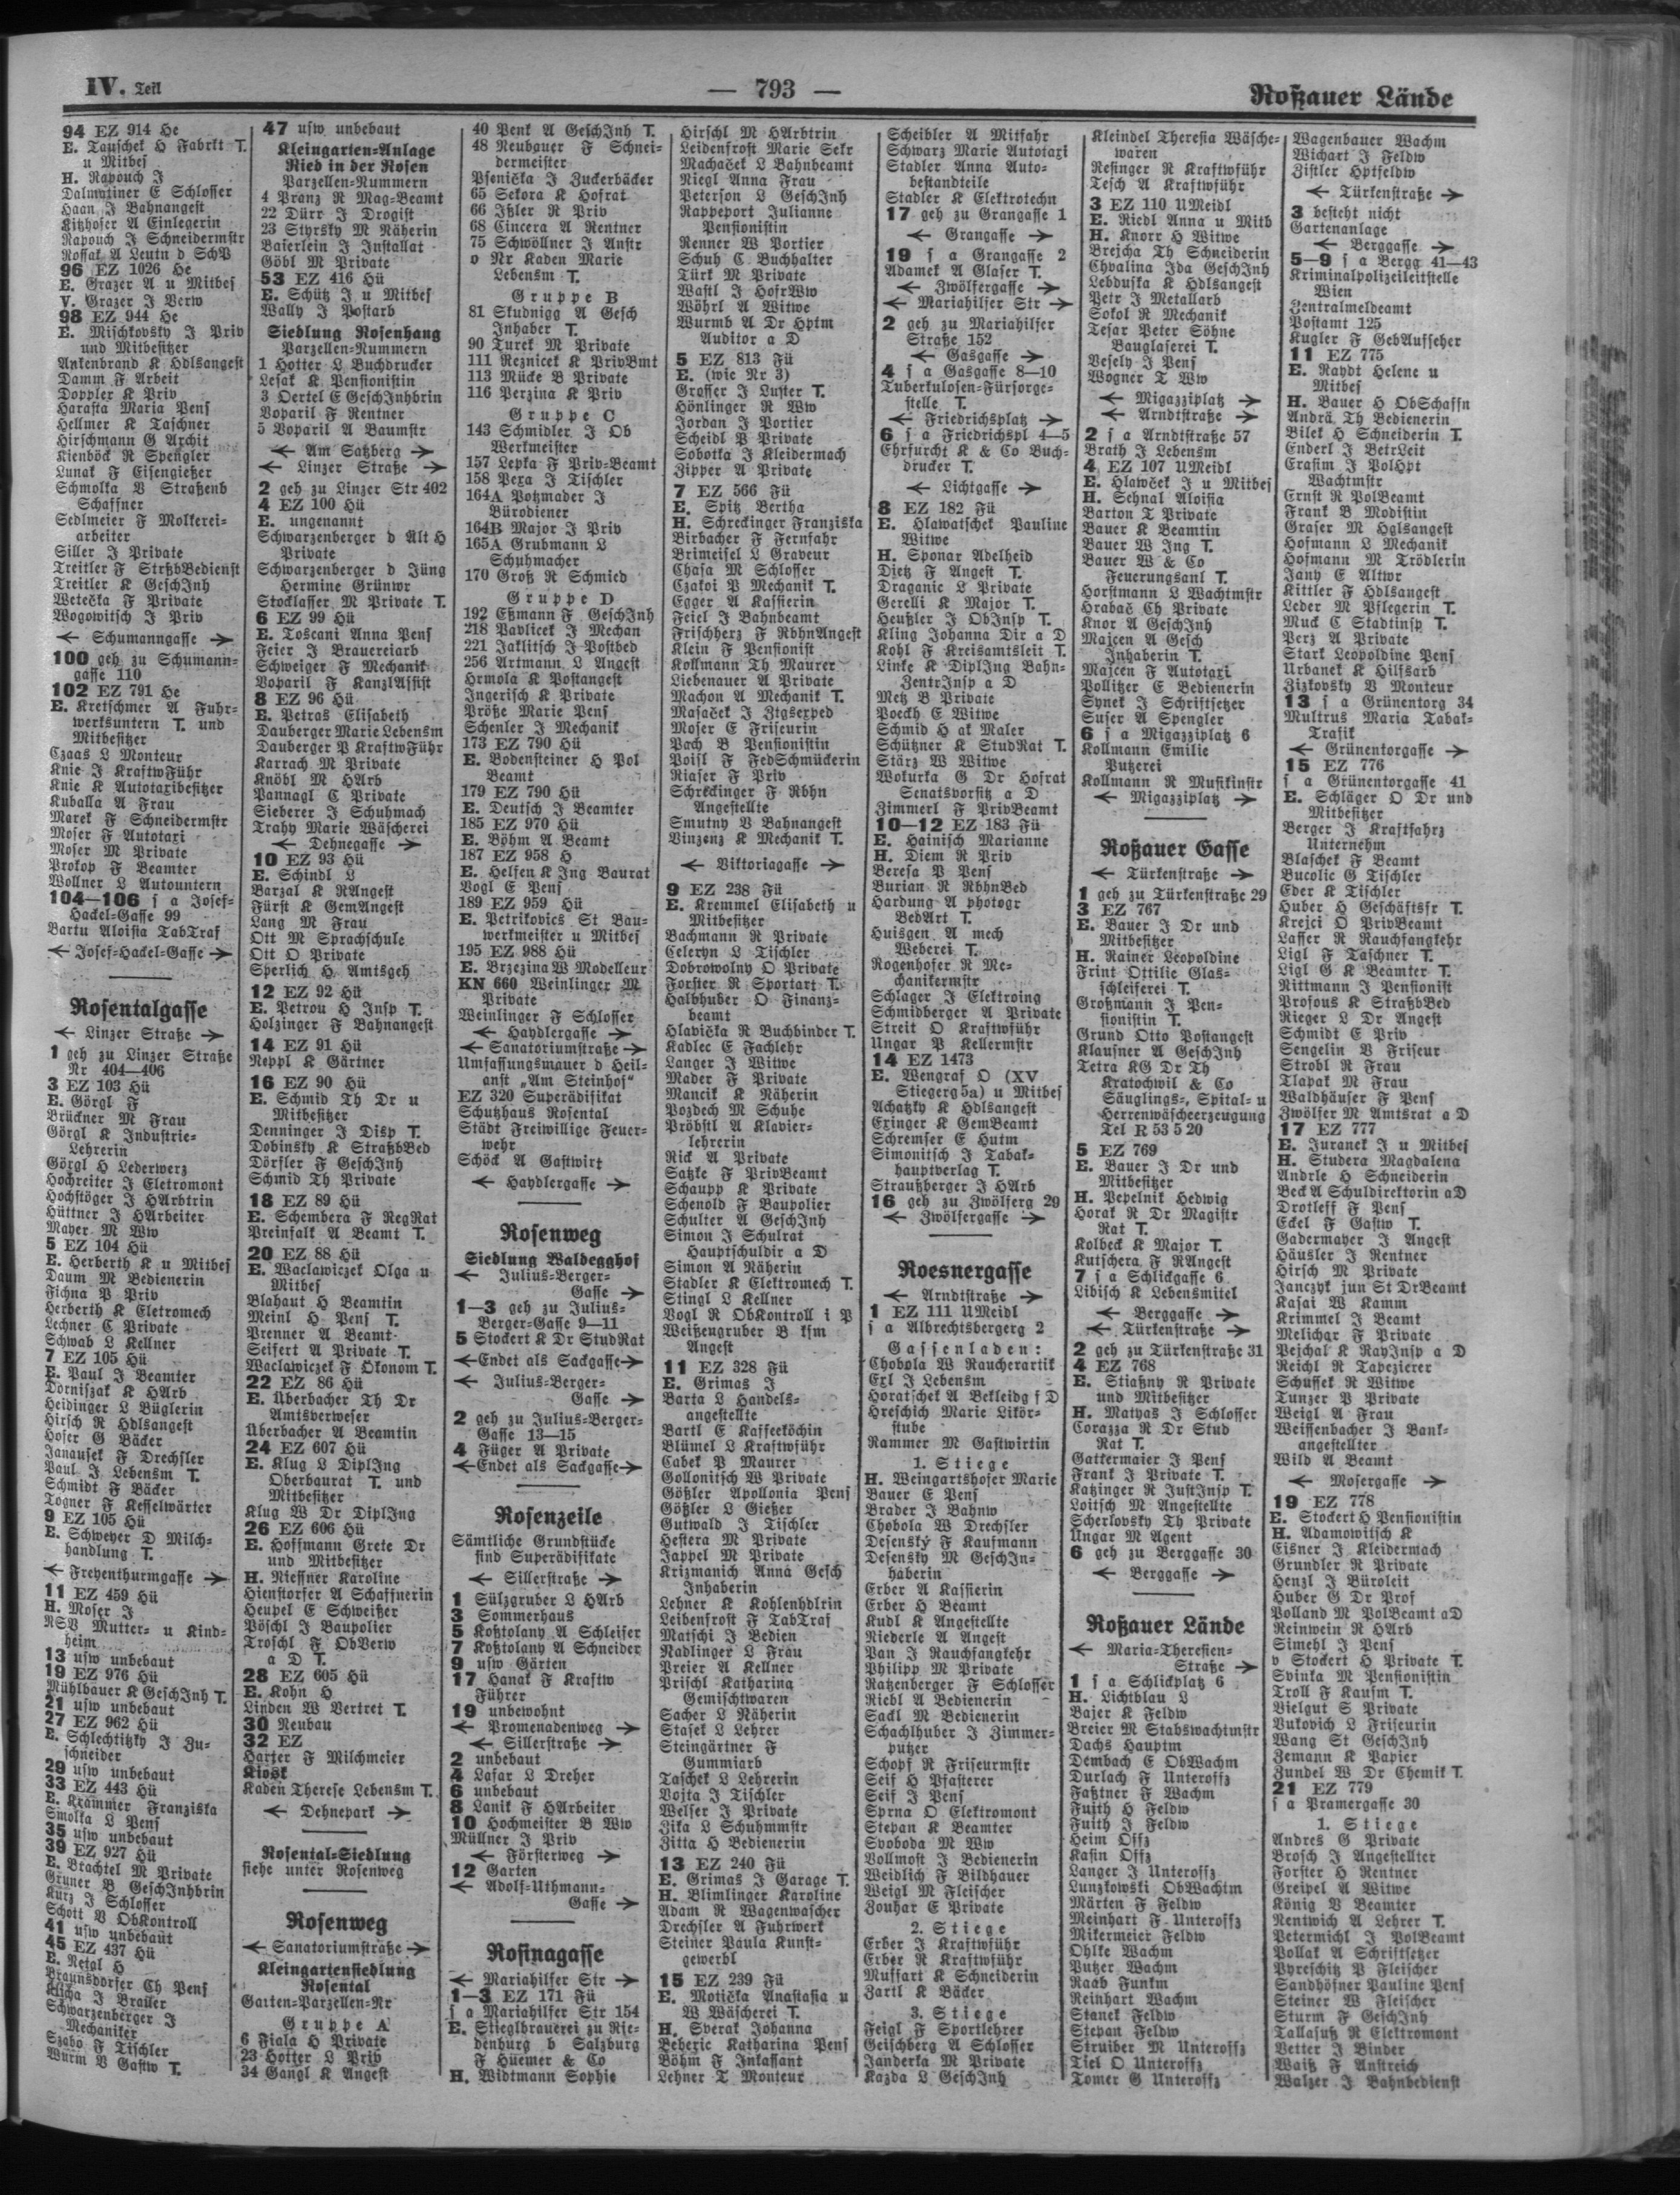 IV. Teil
— 793 —
Roßauer Lände
94 EZ 914 He
E. Tauschek H Fabrkt T.
u Mitbes
H. Rapouch J
Dalmatiner E Schlosser
Haan J Bahnangest
Kitzhofer A Einlegerin
Rapouch J Schneidermstr
Rossak A Leutn d SchP
96 EZ 1026 He
E. Grazer A u Mitbes
V. Grazer J Verw
98 EZ 944 He
E. Mischkovsky J Priv
und Mitbesitzer
Ankenbrand K Hdlsangest
Damm F Arbeit
Doppler K Priv
Harasta Maria Pens
Hellmer K Taschner
Hirschmann G Archit
Kienböck R Spengler
Lunak F Eisengießer
Schmolka V Straßenb
Schaffner
Sedlmeier F Molkerei-
arbeiter
Siller J Private
Treitler F StrßbBedienst
Treitler K GeschInh
Wetečka F Private
Wogowitsch J Priv
← Schumanngasse →
100 geh zu Schumann-
gasse 110
102 EZ 791 He
E. Kretschmer A Fuhr-
werksuntern T. und
Mitbesitzer
Czaas L Monteur
Knie J KraftwFühr
Knie K Autotaxibesitzer
Kuballa A Frau
Marek F Schneidermstr
Moser F Autotaxi
Moser M Private
Prokop F Beamter
Wollner L Autountern
104—106 s a Josef-
Hackel-Gasse 99
Bartu Aloisia TabTraf
← Josef-Hackel-Gasse →
Rosentalgasse
← Linzer Straße →
1 geh zu Linzer Straße
Nr 404—406
3 EZ 103 Hü
E. Görgl F
Brückner M Frau
Görgl K Industrie-
Lehrerin
Görgl H Lederwerz
Hochreiter J Eletromont
Hochstöger J HArbtrin
Hüttner J HArbeiter
Mayer M Ww
5 EZ 104 Hü
E. Herberth K u Mitbes
Daum M Bedienerin
Fichna P Priv
Herberth K Eletromech
Lechner C Private
Schwab L Kellner
7 EZ 105 Hü
E. Paul J Beamter
Dorniszak K HArb
Heidinger L Büglerin
Hirsch R Hdlsangest
Hofer G Bäcker
Janausek F Drechsler
Paul J Lebensm T.
Schmidt F Bäcker
Togner F Kesselwärter
9 EZ 105 Hü
E. Schweyer D Milch-
handlung T.
← Freyenthurmgasse →
11 EZ 459 Hü
H. Moser J
NSV Mutter- u Kind-
heim
13 usw unbebaut
19 EZ 976 Hü
Mühlbauer K GeschInh T.
21 usw unbebaut
27 EZ 962 Hü
E. Schlechtitzky J Zu-
schneider
29 usw unbebaut
33 EZ 443 Hü
E. Krammer Franziska
Smolka L Pens
35 usw unbebaut
39 EZ 927 Hü
E. Brachtel M Private
Gruner B GeschInhbrin
Kurz J Schlosser
Schott V ObKontroll
41 usw unbebaut
45 EZ 437 Hü
E. Netal H
Braunsdorfer Ch Pens
Klicha J Brailer
Schwarzenberger J
Mechaniker
Szabo F Tischler
Wurm V Gastw T.
47 usw unbebaut
Kleingarten-Anlage
Ried in der Rosen
Parzellen-Nummern
4 Pranz R Mag-Beamt
22 Dürr J Drogist
23 Styrsky M Näherin
Baierlein J Installat
Göbl M Private
53 EZ 416 Hü
E. Schütz J u Mitbes
Wally J Postarb
Siedlung Rosenhang
Parzellen-Nummern
1 Hotter L Buchdrucker
Lesak K Pensionistin
3 Oertel E GeschInhbrin
Voparil F Rentner
5 Voparil A Baumstr
← Am Satzberg →
← Linzer Straße →
2 geh zu Linzer Str 402
4 EZ 100 Hü
E. ungenannt
Schwarzenberger d Alt H
Private
Schwarzenberger d Jüng
Hermine Grünwr
Stocklasser M Private T.
6 EZ 99 Hü
E. Toscani Anna Pens
Feier J Brauereiarb
Schweiger F Mechanik
Voparil F KanzlAssist
8 EZ 96 Hü
E. Petras Elisabeth
Dauberger Marie Lebensm
Dauberger P KraftwFühr
Karrach M Private
Knöbl M HArb
Pannagl C Private
Sieberer J Schuhmach
Trahy Marie Wäscherei
← Dehnegasse →
10 EZ 93 Hü
E. Schindl L
Barzal K RAngest
Fürst K GemAngest
Lang M Frau
Ott M Sprachschule
Ott O Private
Sperlich H Amtsgeh
12 EZ 92 Hü
E. Petrou H Insp T.
Holzinger F Bahnangest
14 EZ 91 Hü
Neppl K Gärtner
16 EZ 90 Hü
E. Schmid Th Dr u
Mitbesitzer
Denninger J Disp T.
Dobinsky K StraßbBed
Dörfler F GeschInh
Schmid Th Private
18 EZ 89 Hü
E. Schembera F RegRat
Preinfalk A Beamt T.
20 EZ 88 Hü
E. Waclawiczek Olga u
Mitbes
Blahaut H Beamtin
Meinl H Pens T.
Prenner A Beamt
Seifert A Private T.
Waclawiczek F Ökonom T.
22 EZ 86 Hü
E. Überbacher Th Dr
Amtsverweser
Überbacher A Beamtin
24 EZ 607 Hü
E. Klug L DiplIng
Oberbaurat T. und
Mitbesitzer
Klug W Dr DiplIng
26 EZ 606 Hü
E. Hoffmann Grete Dr
und Mitbesitzer
H. Niessner Karoline
Hienstorfer A Schaffnerin
Heupel E Schweißer
Pöschl J Baupolier
Troschl F ObVerw
a D T.
28 EZ 605 Hü
E. Kohn H
Linden W Vertret T.
30 Neubau
32 EZ
Harter F Milchmeier
Kiosk
Kaden Therese Lebensm T.
← Dehnepark →
Rosental-Siedlung
siehe unter Rosenweg
Rosenweg
← Sanatoriumstraße →
Kleingartensiedlung
Rosental
Garten-Parzellen-Nr
Gruppe A
6 Fiala H Private
23 Hotter L Priv
34 Gangl K Angest
40 Penk A GeschInh T.
48 Neubauer F Schnei-
dermeister
Psenička J Zuckerbäcker
65 Sekora K Hofrat
66 Ißler R Priv
68 Cincera A Rentner
75 Schwöllner J Anstr
o Nr Kaden Marie
Lebensm T.
Gruppe B
81 Skudnigg A Gesch
Inhaber T.
90 Turek M Private
111 Reznicek K PrivBmt
113 Mücke B Private
116 Perzina K Priv
Gruppe C
143 Schmidler J Ob
Werkmeister
157 Lepka F Priv-Beamt
158 Pexa J Tischler
164A Potzmader J
Bürodiener
164B Major J Priv
165A Grubmann L
Schuhmacher
170 Groß R Schmied
Gruppe D
192 Eßmann F GeschInh
218 Pavlicek J Mechan
221 Jaklitsch J Postbed
256 Artmann L Angest
Hrmola K Postangest
Ingerisch K Private
Größe Marie Pens
Schenler J Mechanik
173 EZ 790 Hü
E. Bodensteiner H Pol
Beamt
179 EZ 790 Hü
E. Deutsch J Beamter
185 EZ 970 Hü
E. Böhm A Beamt
187 EZ 958 H
E. Helfen K Ing Baurat
Vogl E Pens
189 EZ 959 Hü
E. Petrikovics St Bau-
werkmeister u Mitbes
195 EZ 988 Hü
E. Brzezina W Modelleur
KN 660 Weinlinger M
Private
Weinlinger F Schlosser
← Haydlergasse →
← Sanatoriumstraße →
Umfassungsmauer d Heil-
anst „Am Steinhof“
EZ 320 Superädifikat
Schutzhaus Rosental
Städt Freiwillige Feuer-
wehr
Schöck A Gastwirt
← Haydlergasse →
Rosenweg
Siedlung Waldegghof
← Julius-Berger-
Gasse →
1—3 geh zu Julius-
Berger-Gasse 9—11
5 Stockert K Dr StudRat
← Endet als Sackgasse →
← Julius-Berger-
Gasse →
2 geh zu Julius-Berger-
Gasse 13—15
4 Füger A Private
← Endet als Sackgasse →
Rosenzeile
Sämtliche Grundstücke
sind Superädifikate
← Sillerstraße →
1 Sülzgruber L HArb
3 Sommerhaus
5 Kosztolany A Schleifer
7 Kosztolany A Schneider
9 usw Gärten
17 Hanak F Kraftw
Führer
19 unbewohnt
← Promenadenweg →
← Sillerstraße →
2 unbebaut
4 Lafar L Dreher
6 unbebaut
8 Lanik F HArbeiter
10 Hochmeister B Ww
Müllner J Priv
← Försterweg →
12 Garten
← Adolf-Uthmann-
Gasse →
Rosinagasse
← Mariahilfer Str →
1—3 EZ 171 Fü
s a Mariahilfer Str 154
E. Stieglbrauerei zu Rie-
denburg b Salzburg
F Hüemer & Co
H. Widtmann Sophie
Hirschl M HArbtrin
Leidenfrost Marie Sekr
Machaček L Bahnbeamt
Riegl Anna Frau
Peterson L GeschInh
Rappeport Julianne
Pensionistin
Renner W Portier
Schuh C Buchhalter
Türk M Private
Wastl J HofrWw
Wöhrl A Witwe
Wurmb A Dr Hptm
Auditor a D
5 EZ 813 Fü
E. (wie Nr 3)
Grosser J Luster T.
Hönlinger R Ww
Jordan J Portier
Scheidl P Private
Sobotka J Kleidermach
Zipper A Private
7 EZ 566 Fü
E. Spitz Bertha
H. Schreckinger Franziska
Birbacher F Fernfahr
Brimeisel L Graveur
Chasa M Schlosser
Czakoi P Mechanik T.
Egger A Kassierin
Feiel J Bahnbeamt
Frischherz F RbhnAngest
Klein F Pensionist
Kollmann Th Maurer
Liebenauer A Private
Machon A Mechanik T.
Masaček J Ztgsexped
Moser E Friseurin
Parh B Pensionistin
Poisl F FedSchmückerin
Riaser F Priv
Schreckinger F Rbhn
Angestellte
Smutny V Bahnangest
Vinzenz K Mechanik T.
← Viktoriagasse →
9 EZ 238 Fü
E. Kremmel Elisabeth u
Mitbesitzer
Bachmann R Private
Celeryn L Tischler
Dobrowolny O Private
Forster R Sportart T.
Halbhuber O Finanz-
beamt
Hlavička R Buchbinder T.
Kadlec E Fachlehr
Langer J Witwe
Mader F Private
Mancik K Näherin
Pozdech M Schuhe
Pröbstl A Klavier-
lehrerin
Rick A Private
Satzke F PrivBeamt
Schaupp K Private
Schenold F Baupolier
Schulter A GeschInh
Simon J Schulrat
Hauptschuldir a D
Simon A Näherin
Stadler K Elektromech T.
Stingl L Kellner
Vogl R ObKontroll i P
Weißengruber B ksm
Angest
11 EZ 328 Fü
E. Grimas J
Barta L Handels-
angestellte
Bartl E Kaffeeköchin
Blümel L Kraftwführ
Cabek P Maurer
Gollonitsch W Private
Gößler Apollonia Pens
Gößler L Gießer
Gutwald J Tischler
Hestera M Private
Jappel M Private
Krizmanich Anna Gesch
Inhaberin
Lehner K Kohlenhdlrin
Leibenfrost F TabTraf
Matschi J Bedien
Nadlinger L Frau
Preier A Kellner
Prischl Katharina
Gemischtwaren
Sacher L Näherin
Stasek L Lehrer
Steingärtner F
Gummiarb
Taschek L Lehrerin
Vojta J Tischler
Welser J Private
Zika L Schuhmmstr
Zitta H Bedienerin
13 EZ 240 Fü
E. Grimas J Garage T.
H. Blimlinger Karoline
Adam R Wagenwascher
Drechsler A Fuhrwerk
Steiner Paula Kunst-
gewerbl
15 EZ 239 Fü
E. Motička Anastasia u
W Wäscherei T.
H. Sverak Johanna
Bederic Katharina Pens
Böhm F Inkassant
Lehner T Monteur
Scheibler A Mitfahr
Schwarz Marie Autotaxi
Stadler Anna Auto-
bestandteile
Stadler K Elektrotechn
17 geh zu Grangasse 1
← Grangasse →
19 s a Grangasse 2
Adamek A Glaser T.
← Zwölfergasse →
← Mariahilfer Str →
2 geh zu Mariahilfer
Straße 152
← Gasgasse →
4 s a Gasgasse 8—10
Tuberkulosen-Fürsorge-
stelle T.
← Friedrichsplatz →
6 s a Friedrichspl 4—5
Ehrfurcht K & Co Buch-
drucker T.
← Lichtgasse →
8 EZ 182 Fü
E. Hlawatschek Pauline
Witwe
H. Sponar Adelheid
Dietz F Angest T.
Draganic L Private
Gerelli K Major T.
Heußler J ObInsp T.
Kling Johanna Dir a D
Kohl F Kreisamtsleit T.
Linke K DiplIng Bahn-
ZentrInsp a D
Metz B Private
Poeckh E Witwe
Schmid H ak Maler
Schützner K StudRat T.
Stärz W Witwe
Wokurka G Dr Hofrat
Senatsvorsitz a D
Zimmerl F PrivBeamt
10—12 EZ 183 Fü
E. Hainisch Marianne
H. Diem R Priv
Beresa P Pens
Burian R RbhnBed
Hardung A photogr
BedArt T.
Huisgen A mech
Weberei T.
Rogenhofer R Me-
chanikermstr
Schlager J Elektroing
Schmidberger A Private
Streit O Kraftwführ
Ungar P Kellermstr
14 EZ 1473
E. Wengraf O (XV
Stiegerg 5a) u Mitbes
Achatzky K Hdlsangest
Exinger K GemBeamt
Schremser E Hutm
Simonitsch J Tabak-
hauptverlag T.
Straußberger J HArb
16 geh zu Zwölferg 29
← Zwölfergasse →
Roesnergasse
← Arndtstraße →
1 EZ 111 UMeidl
s a Albrechtsbergerg 2
Gassenladen:
Chobola W Raucherartik
Exl J Lebensm
Horatschek A Bekleidg f D
Hreschich Marie Likör-
stube
Rammer M Gastwirtin
1. Stiege
H. Weingartshofer Marie
Bauer E Pens
Brader J Bahnw
Chobola W Drechsler
Desenský F Kaufmann
Desensky M GeschIn-
haberin
Erber A Kassierin
Erber H Beamt
Kudl K Angestellte
Niederle A Angest
Pan J Rauchfangkehr
Philipp M Private
Ratzenberger F Schlosser
Riebl A Bedienerin
Sackl M Bedienerin
Schachlhuber J Zimmer-
putzer
Schopf R Friseurmstr
Seif H Pfasterer
Seif J Pens
Sprna O Elektromont
Stepan K Beamter
Svoboda M Ww
Vollmost J Bedienerin
Weidlich F Bildhauer
Weigl M Fleischer
Zouhar E Private
2. Stiege
Erber J Kraftwführ
Erber R Kraftwführ
Mussart K Schneiderin
Zartl K Bäcker
3. Stiege
Feigl F Sportlehrer
Geischberg A Schlosser
Janderka M Private
Kazda L GeschInh
Kleindel Theresia Wäsche-
waren
Resinger R Kraftwführ
Tesch A Kraftwführ
3 EZ 110 UMeidl
E. Riedl Anna u Mitb
H. Knorr H Witwe
Brejcha Th Schneiderin
Chvalina Ida GeschInh
Lebduska K Hdlsangest
Petr J Metallarb
Sokol R Mechanik
Tesar Peter Söhne
Bauglaserei T.
Vesely J Pens
Wogner T Ww
← Migazziplatz →
← Arndtstraße →
2 s a Arndtstraße 57
Brath J Lebensm
4 EZ 107 UMeidl
E. Hlawček J u Mitbes
H. Sehnal Aloisia
Barton T Private
Bauer K Beamtin
Bauer W Ing T.
Bauer W & Co
Feuerungsanl T.
Horstmann L Wachtmstr
Hrabač Ch Private
Knor A GeschInh
Majcen A Gesch
Inhaberin T.
Majcen F Autotaxi
Pollitzer E Bedienerin
Synek J Schriftsetzer
Suser A Spengler
6 s a Migazziplatz 6
Kollmann Emilie
Putzerei
Kollmann R Musikinstr
← Migazziplatz →
Roßauer Gasse
← Türkenstraße →
1 geh zu Türkenstraße 29
3 EZ 767
E. Bauer J Dr und
Mitbesitzer
H. Rainer Leopoldine
Frint Ottilie Glas-
schleiferei T.
Großmann J Pen-
sionistin T.
Grund Otto Postangest
Klausner A GeschInh
Tetra KG Dr Th
Kratochwil & Co
Säuglings-, Spital- u
Herrenwäscheerzeugung
Tel R 53 5 20
5 EZ 769
E. Bauer J Dr und
Mitbesitzer
H. Pepelnik Hedwig
Horak R Dr Magistr
Rat T.
Kolbeck K Major T.
Kutschera F RAngest
7 s a Schlickgasse 6
Libisch K Lebensmitel
← Berggasse →
← Türkenstraße →
2 geh zu Türkenstraße 31
4 EZ 768
E. Stiaßny R Private
und Mitbesitzer
H. Matyas J Schlosser
Corazza R Dr Stud
Rat T.
Gatkermaier J Pens
Frank J Private T.
Katzinger R JustInsp T.
Loitsch M Angestellte
Scherlovsky Th Private
Ungar M Agent
6 geh zu Berggasse 30
← Berggasse →
Roßauer Lände
← Maria-Theresien-
Straße →
1 s a Schlickplatz 6
H. Lichtblau L
Bajer K Feldw
Breier M Stabswachtmstr
Dachs Hauptm
Dembach E ObWachm
Durlach F Unteroffz
Faßtner F Wachm
Fuith H Feldw
Fuith J Feldw
Heim Offz
Kasin Offz
Langer J Unteroffz
Lunzkowski ObWachtm
Märten F Feldw
Meinhart F Unteroffz
Mikermeier Feldw
Ohlke Wachm
Putzer Wachm
Raab Funkm
Reinhart Wachm
Stanek Feldw
Stepan Feldw
Struiber M Unteroffz
Tiel O Unteroffz
Tomer G Unteroffz
Wagenbauer Wachm
Wichart J Feldw
Zistler Hptfeldw
← Türkenstraße →
3 besteht nicht
Gartenanlage
← Berggasse →
5—9 s a Bergg 41—43
Kriminalpolizeileitstelle
Wien
Zentralmeldeamt
Postamt 125
Kugler F GebAufseher
11 EZ 775
E. Raydt Helene u
Mitbes
H. Bauer H ObSchaffn
Andrä Th Bedienerin
Bilek H Schneiderin T.
Enderl J BetrLeit
Erasim J PolHpt
Wachtmstr
Ernst R PolBeamt
Frank B Modistin
Graser M Hglsangest
Hofmann L Mechanik
Hofmann M Trödlerin
Jany E Altwr
Kittler F Hdlsangest
Leder M Pflegerin T.
Muck C Stadtinsp T.
Perz A Private
Stark Leopoldine Pens
Urbanek K Hilfsarb
Zizkovsky V Monteur
13 s a Grünentorg 34
Multrus Maria Tabak-
Trafik
← Grünentorgasse →
15 EZ 776
s a Grünentorgasse 41
E. Schläger O Dr und
Mitbesitzer
Berger J Kraftfahrz
Unternehm
Blaschek F Beamt
Bucolic G Tischler
Eder K Tischler
Huber H Geschäftsfr T.
Krejci O PrivBeamt
Lasser R Rauchfangkehr
Ligl F Taschner T.
Ligl G K Beamter T.
Nittmann J Pensionist
Profous K StraßbBed
Rieger L Dr Angest
Schmidt E Priv
Sengelin V Friseur
Strobl R Frau
Tlapak M Frau
Waldhäuser F Pens
Zwölfer M Amtsrat a D
17 EZ 777
E. Juranek J u Mitbes
H. Studera Magdalena
Andrle H Schneiderin
Beck A Schuldirektorin aD
Drotleff F Pens
Eckel F Gastw T.
Gadermayer J Angest
Häusler J Rentner
Hirsch M Private
Janczyk jun St DrBeamt
Kasai W Kamm
Krimmel J Beamt
Melichar F Private
Pejchal K RayInsp a D
Reichl R Tapezierer
Schussek R Witwe
Tunzer P Private
Weigl A Frau
Weissenbacher J Bank-
angestellter
Wild A Beamt
← Mosergasse →
19 EZ 778
E. Stockert H Pensionistin
H. Adamowitsch K
Eisner J Kleidermach
Grundler R Private
Henzl J Büroleit
Huber G Dr Prof
Polland M PolBeamt aD
Reinwein R HArb
Simehl J Pens
v Stockert H Private T.
Svinka M Pensionistin
Troll F Kaufm T.
Vielgut S Private
Vukovich L Friseurin
Wang St GeschInh
Zemann K Papier
Zundel W Dr Chemik T.
21 EZ 779
s a Pramergasse 30
1. Stiege
Andres G Private
Brosch J Angestellter
Forster H Rentner
Greipel A Witwe
König V Beamter
Nentwich A Lehrer T.
Petermichl J PolBeamt
Pollak A Schriftsetzer
Pyreschitz P Fleischer
Sandhöfner Pauline Pens
Steiner W Fleischer
Sturm F GeschInh
Tallasuß R Elektromont
Vetter J Binder
Waiß F Anstreich
Walzer J Bahnbedienst